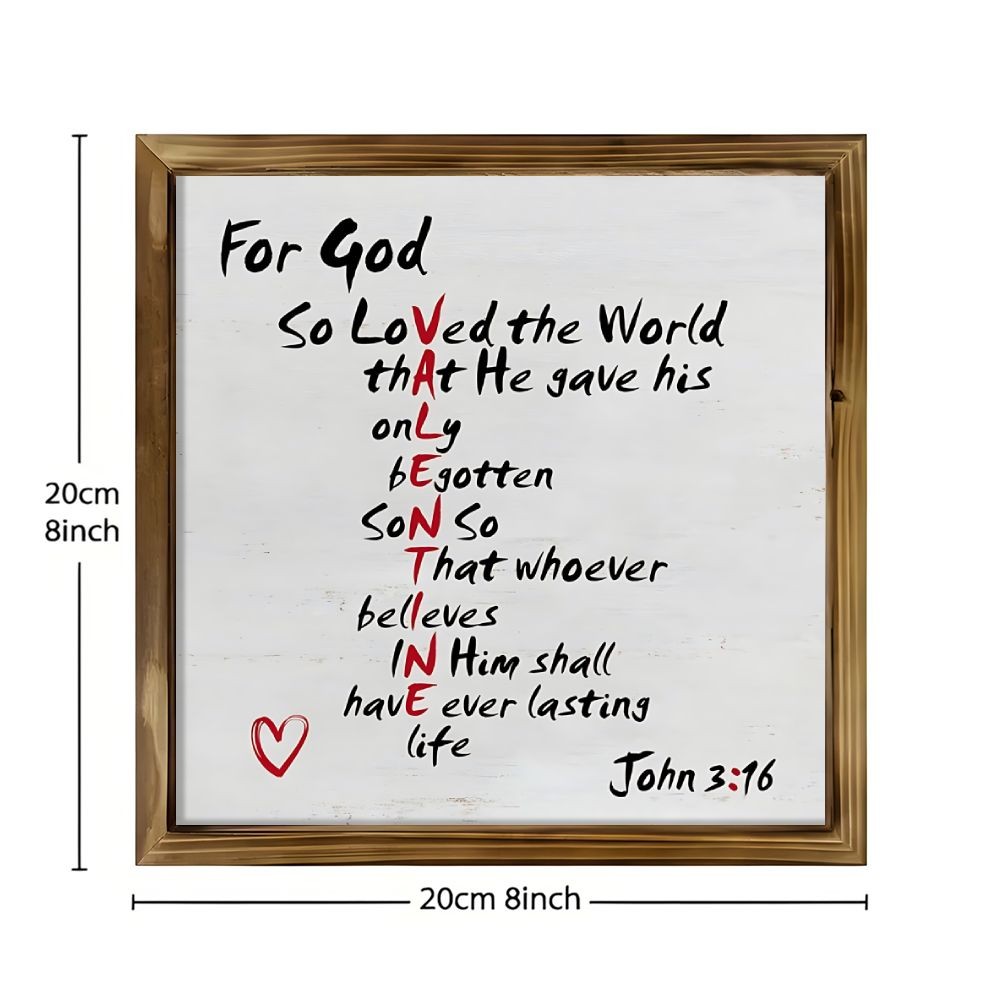 For God
So LoVed the World
thAt He gave his
onLy
bEgotten
SoN So
That whoever
belIeves
IN Him shall
havE ever lasting
life
John 3:16
20cm
8inch
20cm 8inch